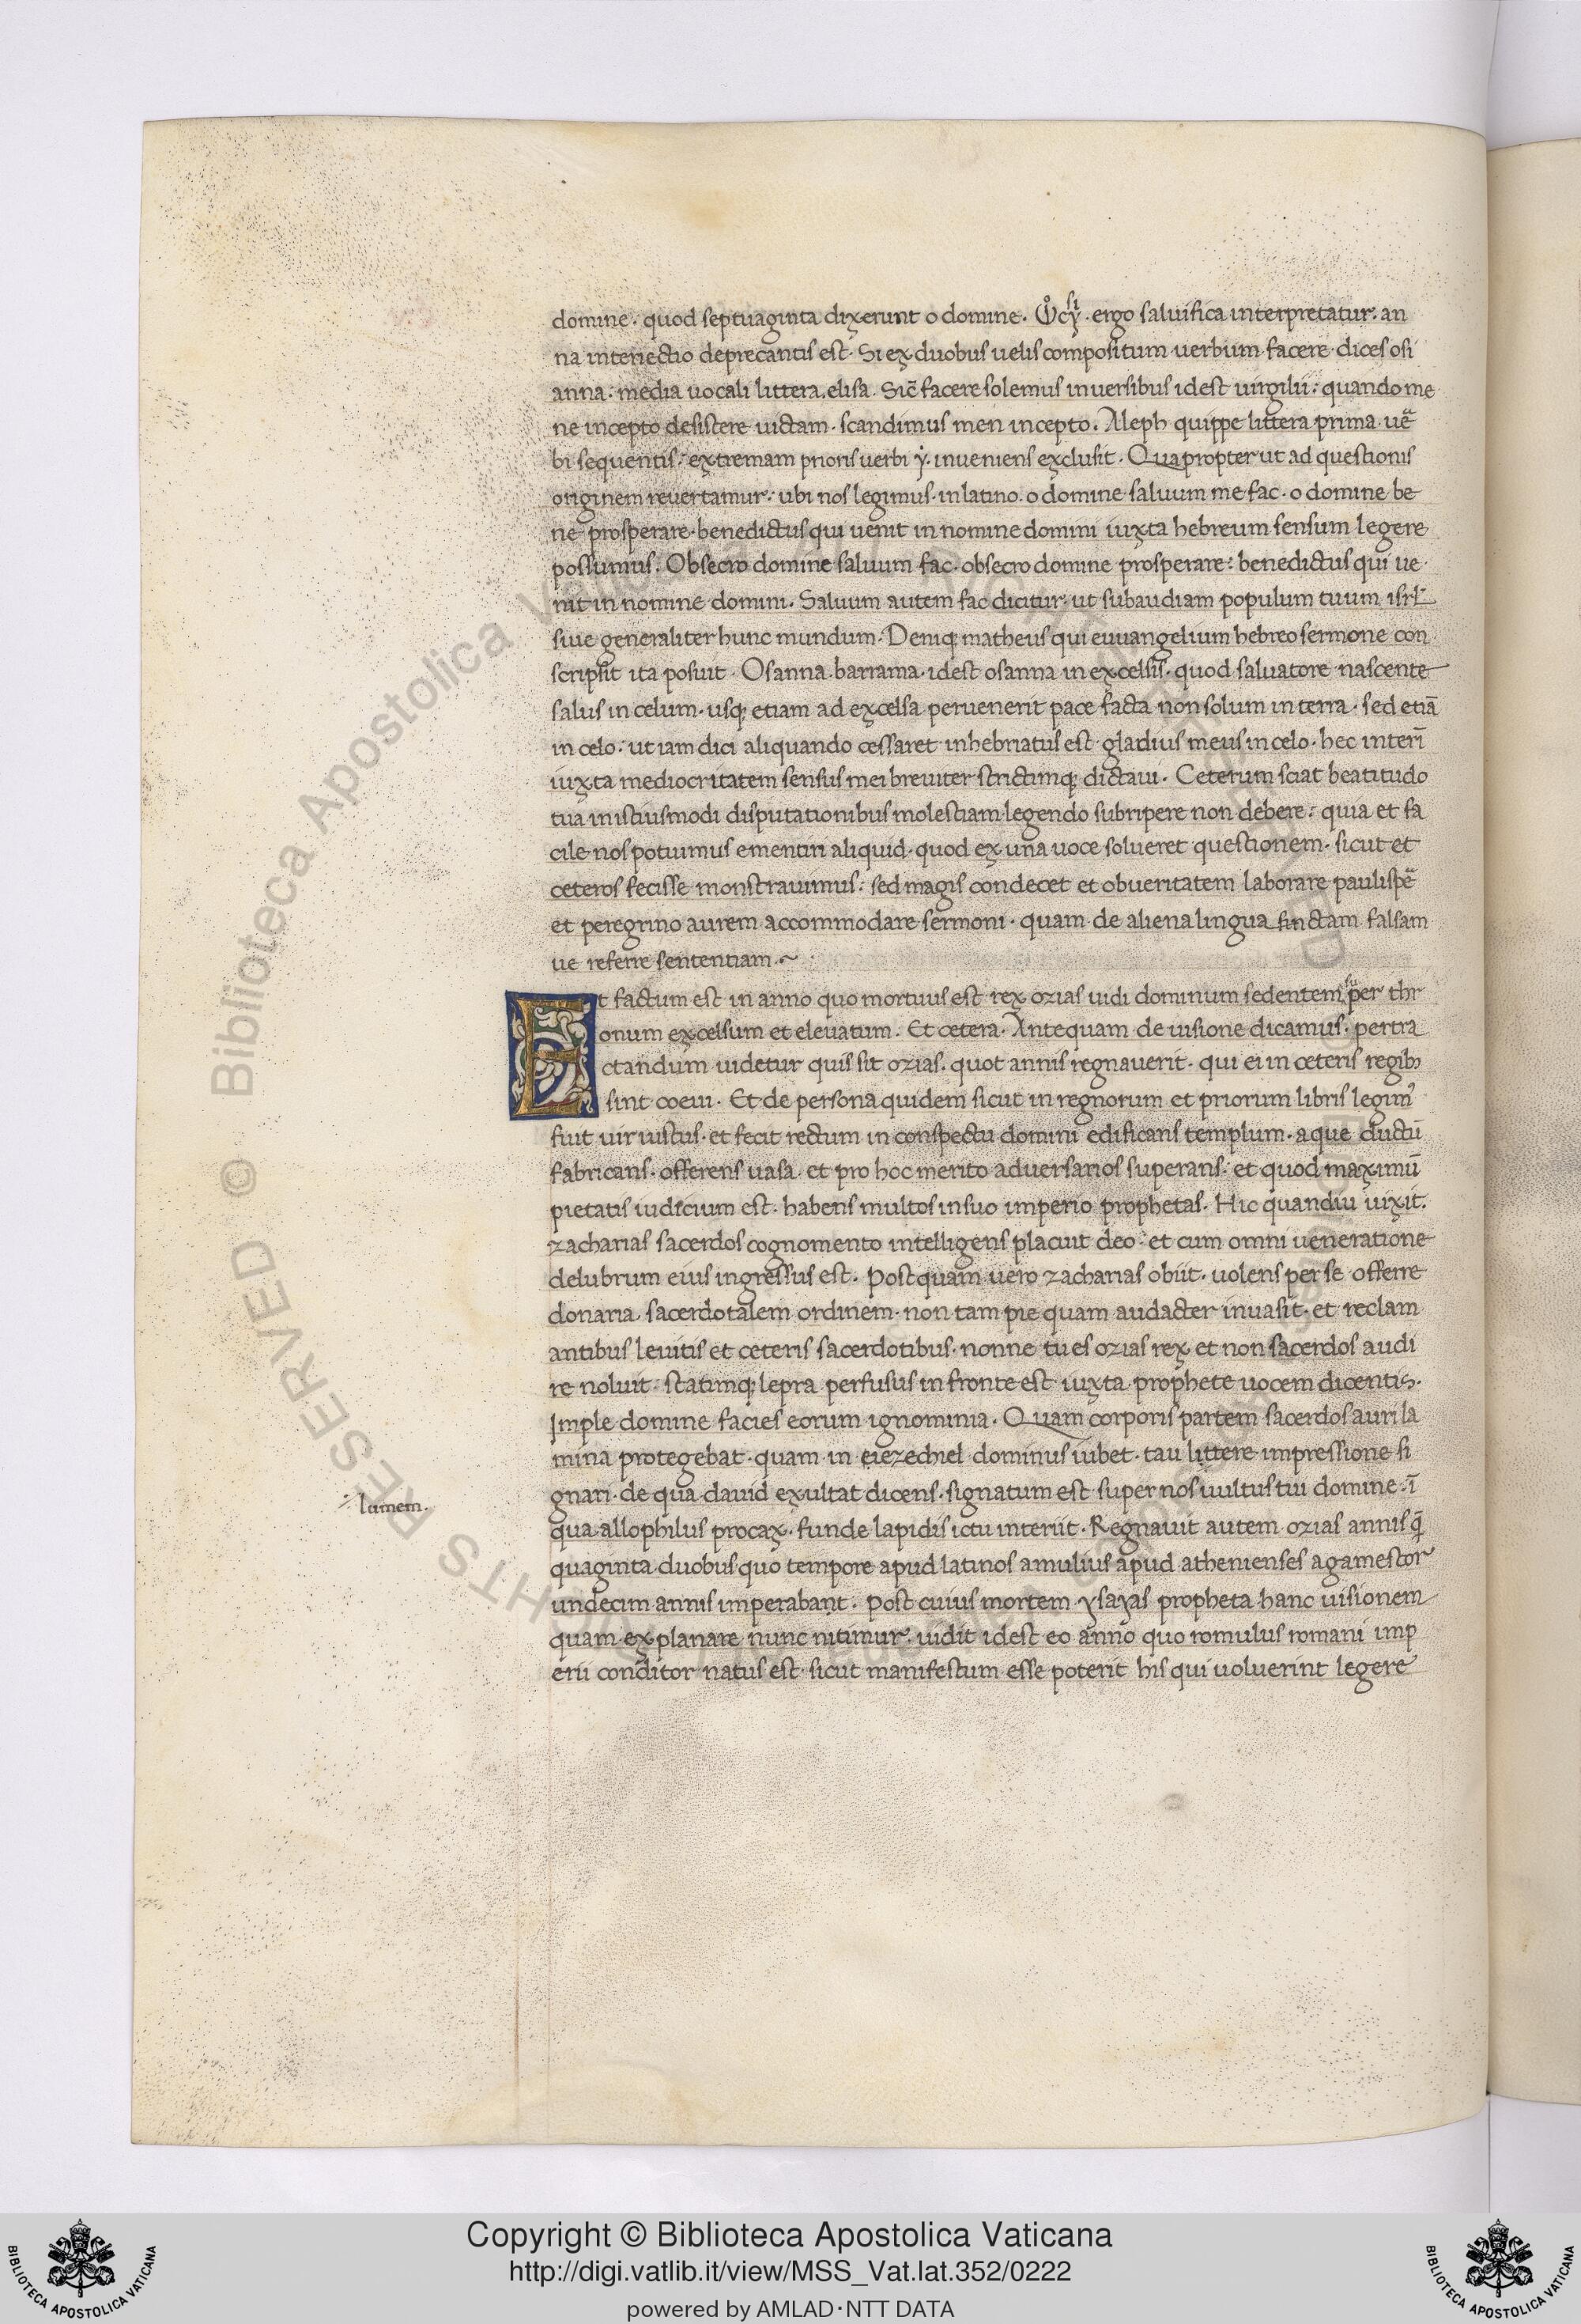 domine· quod septuaginta dixerunt o domine. ergo saluifica interpretatur· an
na interiectio deprecantis est· Si ex duobus uelis compositum uerbum facere dices osi
anna: media uocali littera elisa. Sic̄ facere solemus in uersibus idest uirgilii: quando me
ne incepto desistere uictam· scandimus men incepto. Aleph quippe littera prima uē
bi sequentis: extremam prioris uerbi ẏ· inueniens exclusit· Quapropter ut ad questionis
originem reuertamur: ubi nos legimus· in latino· o domine saluum me fac· o domine be
ne prosperare· benedictus qui uenit in nomine domini iuxta hebreum sensum legere
possumus: Obsecro domine saluum fac· obsecro domine prosperare: benedictus qui ue·
nit in nomine domini. Saluum autem fac dicitur· ut subaudiam populum tuum isrl̄
siue generaliter hunc mundum· Deniq; matheus qui euuangelium hebreo sermone con
scripsit ita posuit· Osanna barrama· idest osanna in excelsis· quod saluatore nascente
salus in celum· usq; etiam ad excelsa peruenerit pace facta non solum in terra· sed etiā
in celo: ut iam dici aliquando cessaret inhebriatus est gladius meus in celo· hec interī
iuxta mediocritatem sensus mei breuiter strictimq; dictaui· Ceterum sciat beatitudo
tua in istiusmodi disputationibus molestiam legendo subripere non debere: quia et fa
cile nos potuimus ementiri aliquid· quod ex una uoce solueret questionem· sicut et
ceteros fecisse monstrauimus: sed magis condecet et ob ueritatem laborare paulispē
et peregrino aurem accommodare sermoni· quam de aliena lingua finctam falsam
ue referre sententiam·~
Et factum est in anno quo mortuus est rex ozias uidi dominum sedentem super thr
onum excelsum et eleuatum· Et cetera· Antequam de uisione dicamus· pertra
ctandum uidetur quis sit ozias· quot annis regnauerit· qui ei in ceteris regib;
sint coeui· Et de persona quidem sicut in regnorum et priorum libris legim᾽
fuit uir iustus· et fecit rectum in conspectu domini edificans templum· aque ductū
fabricans· offerens uasa· et pro hoc merito aduersarios superans: et quod maximū
pietatis iudicium est· habens multos in suo imperio prophetas· Hic quandiu uixit·
zacharias sacerdos cognomento intelligens placuit deo: et cum omni ueneratione
delubrum eius ingressus est· Postquam uero zacharias obiit· uolens per se offerre
donaria sacerdotalem ordinem· non tam pie quam audacter inuasit· et reclam
antibus leuitis et ceteris sacerdotibus· nonne tu es ozias rex et non sacerdos audi
re noluit· statimq; lepra perfusus in fronte est iuxta prophete uocem dicentis·
Imple domine facies eorum ignominia· Quam corporis partem sacerdos auri la
mina protegebat· quam in eiezechiel dominus iubet· tau littere impressione si
gnari· de qua dauid exultat dicens· signatum est super nos uultus tui domine·: ī
lumem·
qua allophilus procax· funde lapidis ictu interiit· Regnauit autem ozias annis q̄
quaginta duobus quo tempore apud latinos amulius apud athenienses agamestor
undecim annis imperabant· Post cuius mortem ysayas propheta hanc uisionem
quam explanare nunc nitimur· uidit idest eo anno quo romulus romani imp
erii conditor natus est· sicut manifestum esse poterit his qui uoluerint legere
© Biblioteca Apostolica Vaticana
Copyright © Biblioteca Apostolica Vaticana
http://digi.vatlib.it/view/MSS_Vat.lat.352/0222
powered by AMLAD·NTT DATA
BIBLIOTECA APOSTOLICA VATICANA
BIBLIOTECA APOSTOLICA VATICANA